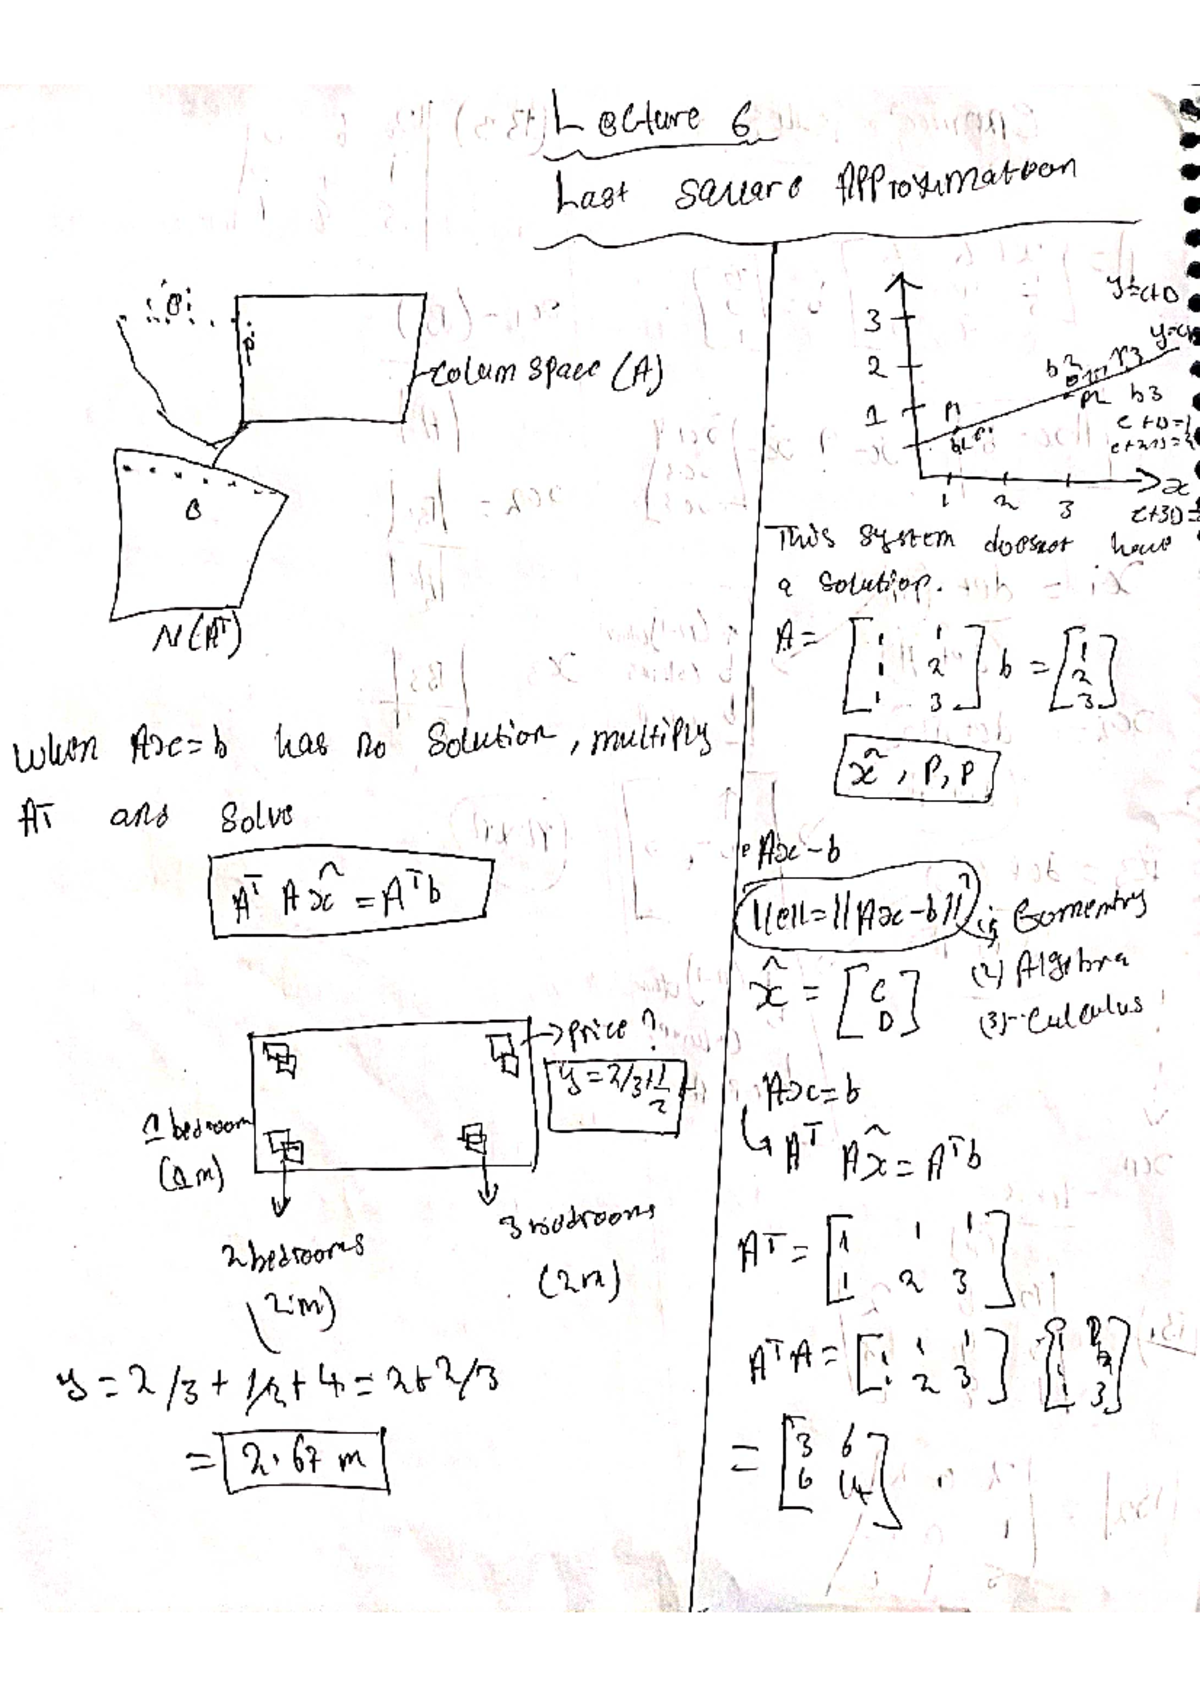 Lecture 6
Last square Approximation
e
P
colum space (A)
e
N(Aᵀ)
When Ax=b has no solution, multiply
AT and solve
Aᵀ A x̂ = Aᵀb
→ price ?
y = 2/3 + 1/2
1 bedroom
(1m)
2 bedrooms
(2m)
3 bedrooms
(2m)
y = 2/3 + 1/2 + 4 = 2 + 2/3
= 2.67 m
3
2
1
y = c+D
b3 r3
P2 b3
P1
c + D = 1
c + 2D = 2
1 2 3 → x
c + 3D =
This system doesnot have
a solution.
A = [1 1
1 2
1 3] b = [1
2
3]
x̂, P, P
e Ax - b
||e|| = ||Ax - b||² Gomentry
(2) Algebra
(3) Calculus
x̂ = [C
D]
Ax = b
↳ Aᵀ A x̂ = Aᵀb
AT = [1 1 1
1 2 3]
AᵀA = [1 1 1
1 2 3] [1 1
1 2
1 3]
= [3 6
6 14]